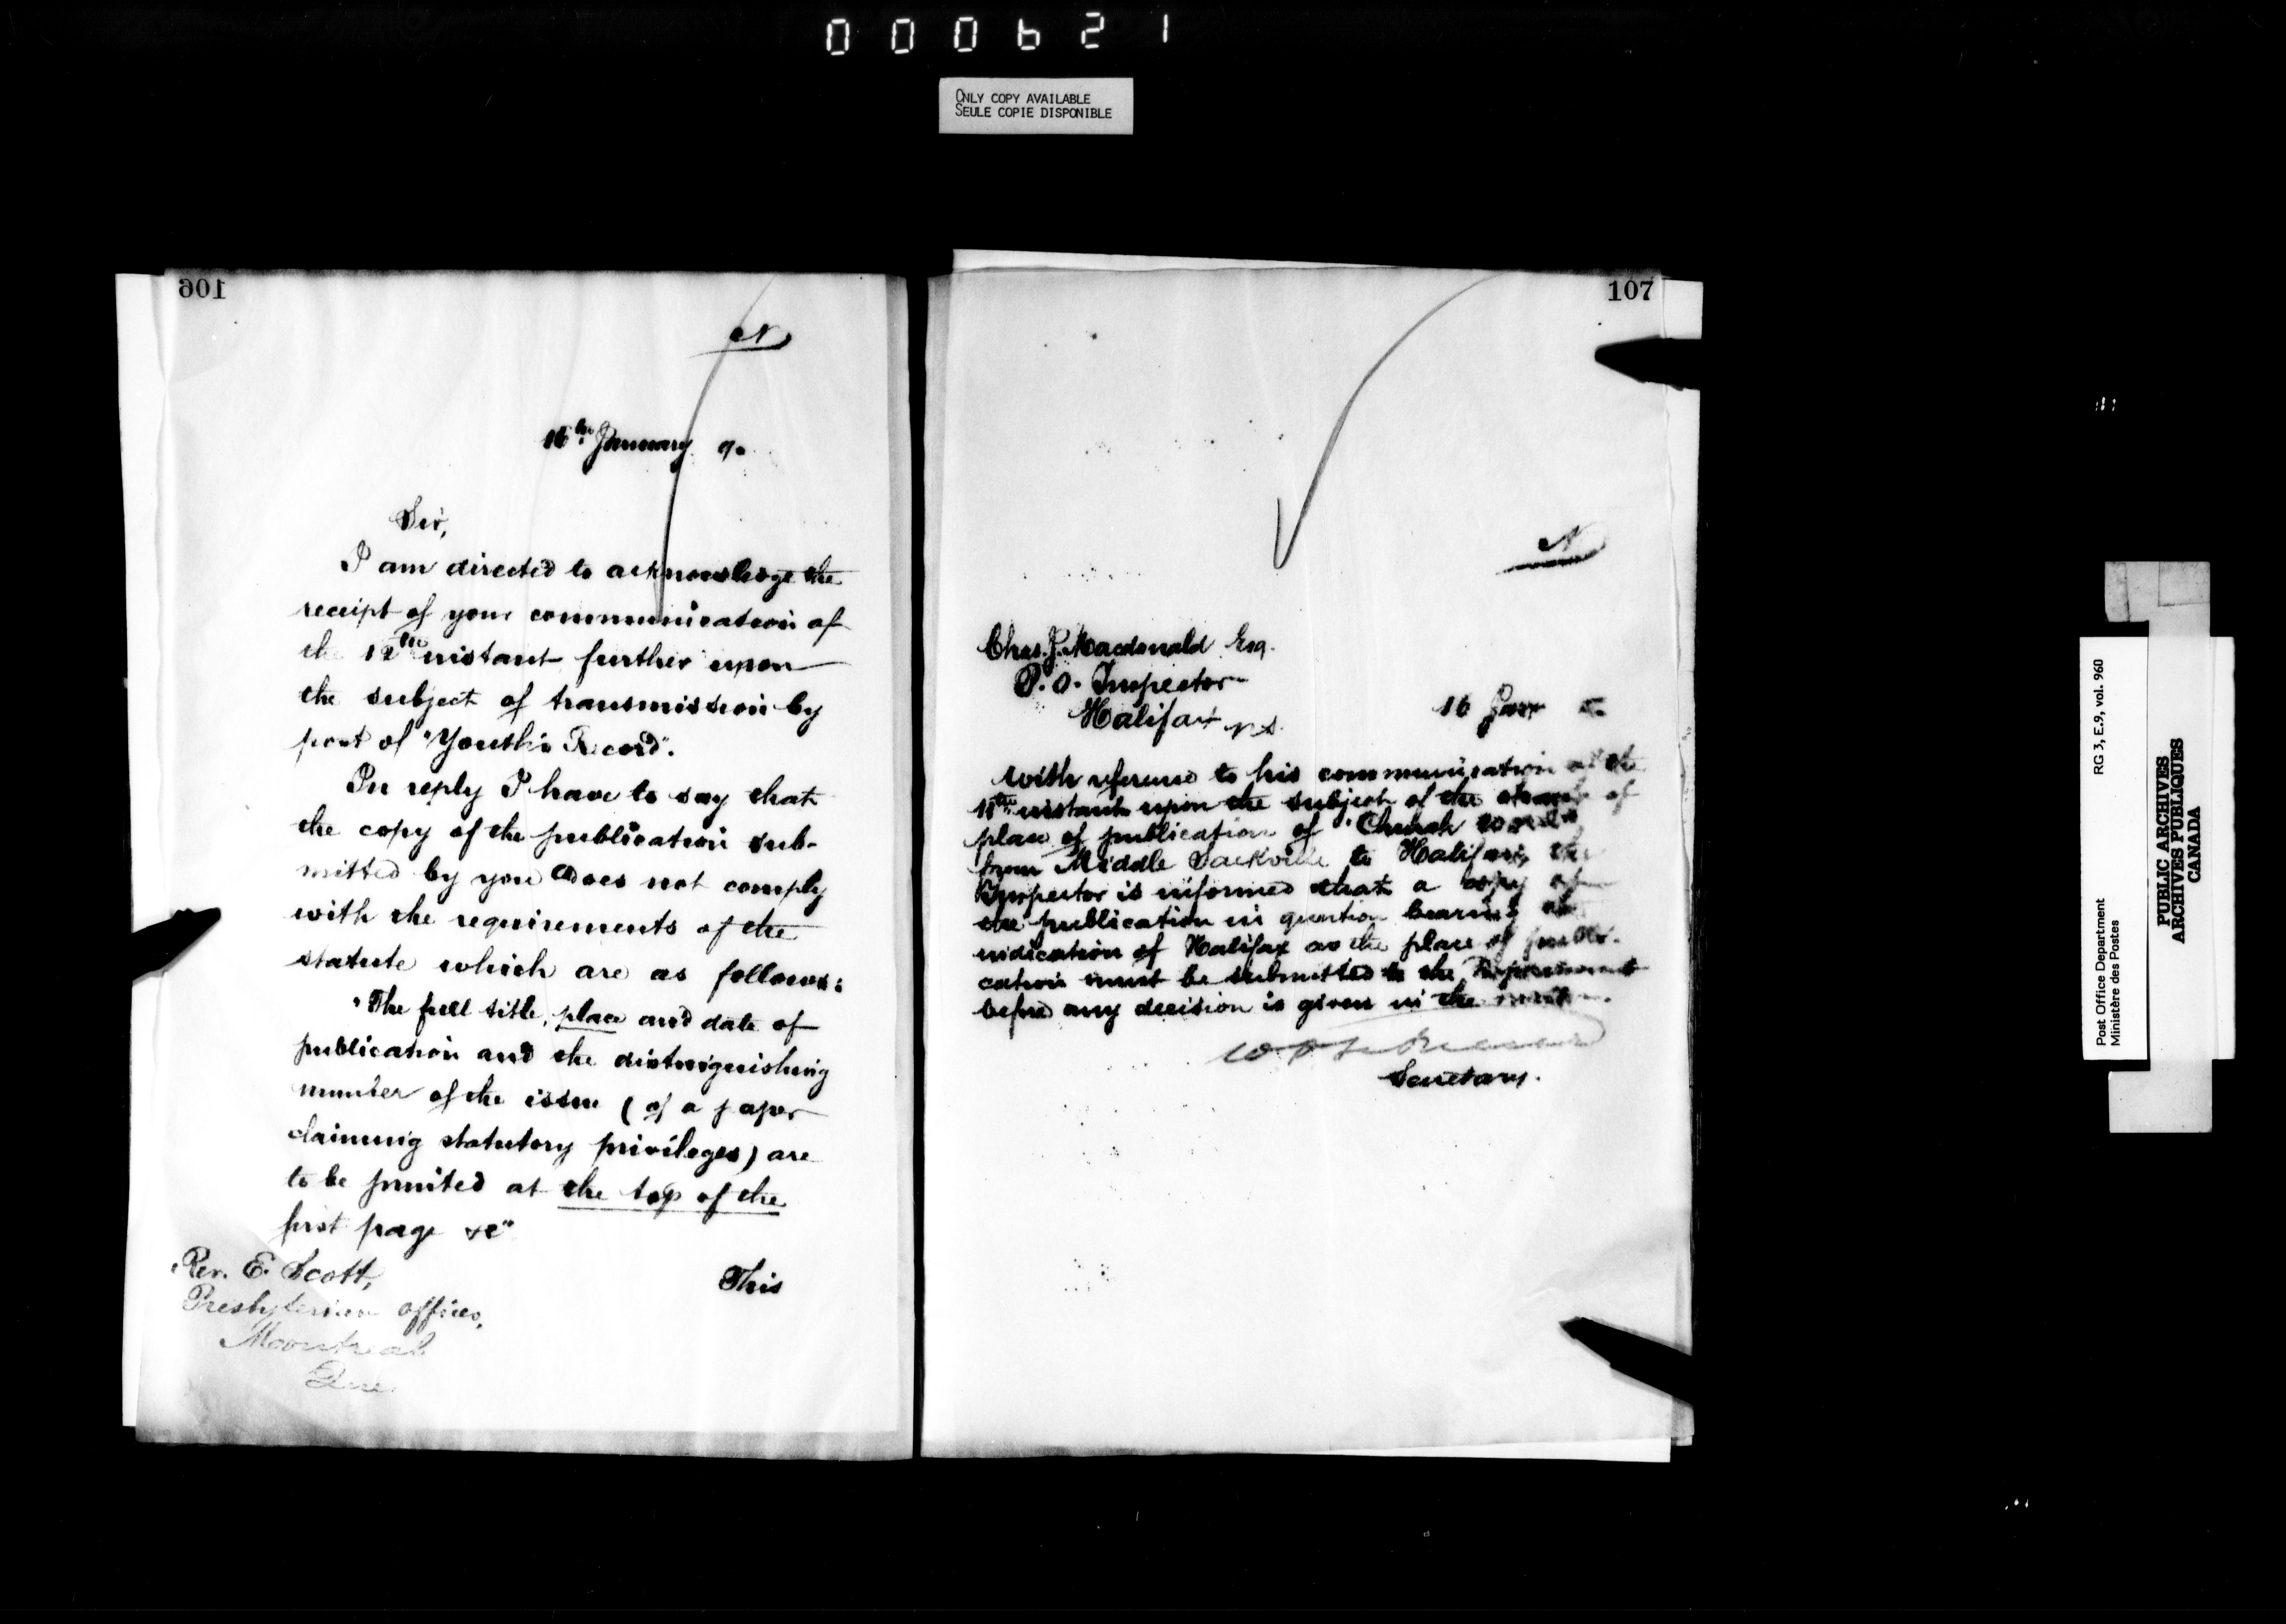 000621
ONLY COPY AVAILABLE
SEULE COPIE DISPONIBLE
106
N
16th January 90
Sir,
I am directed to acknowledge the
receipt of your communication of
the 12th instant further upon
the subject of transmission by
post of "Youth's Record".
In reply I have to say that
the copy of the publication sub-
mitted by you does not comply
with the requirements of the
statute which are as follows:
"The full title, place and date of
publication and the distinguishing
number of the issue (of a paper
claiming statutory privileges) are
to be printed at the top of the
first page &c"
This
Rev. E. Scott,
Presbyterian offices,
Montreal
Que.
107
N
Chas. J. Macdonald Esq.
P.O. Inspector
Halifax N.S.
16 Jany
With reference to his communication of the
11th instant upon the subject of the change of
place of publication of "Church Work"
from Middle Sackville to Halifax, the
Inspector is informed that a copy of
the publication in question bearing
indication of Halifax as the place of publi-
cation must be submitted to the Department
before any decision is given in the matter.
Secretary.
Post Office Department
Ministère des Postes
RG 3, E.9, vol. 960
PUBLIC ARCHIVES
ARCHIVES PUBLIQUES
CANADA